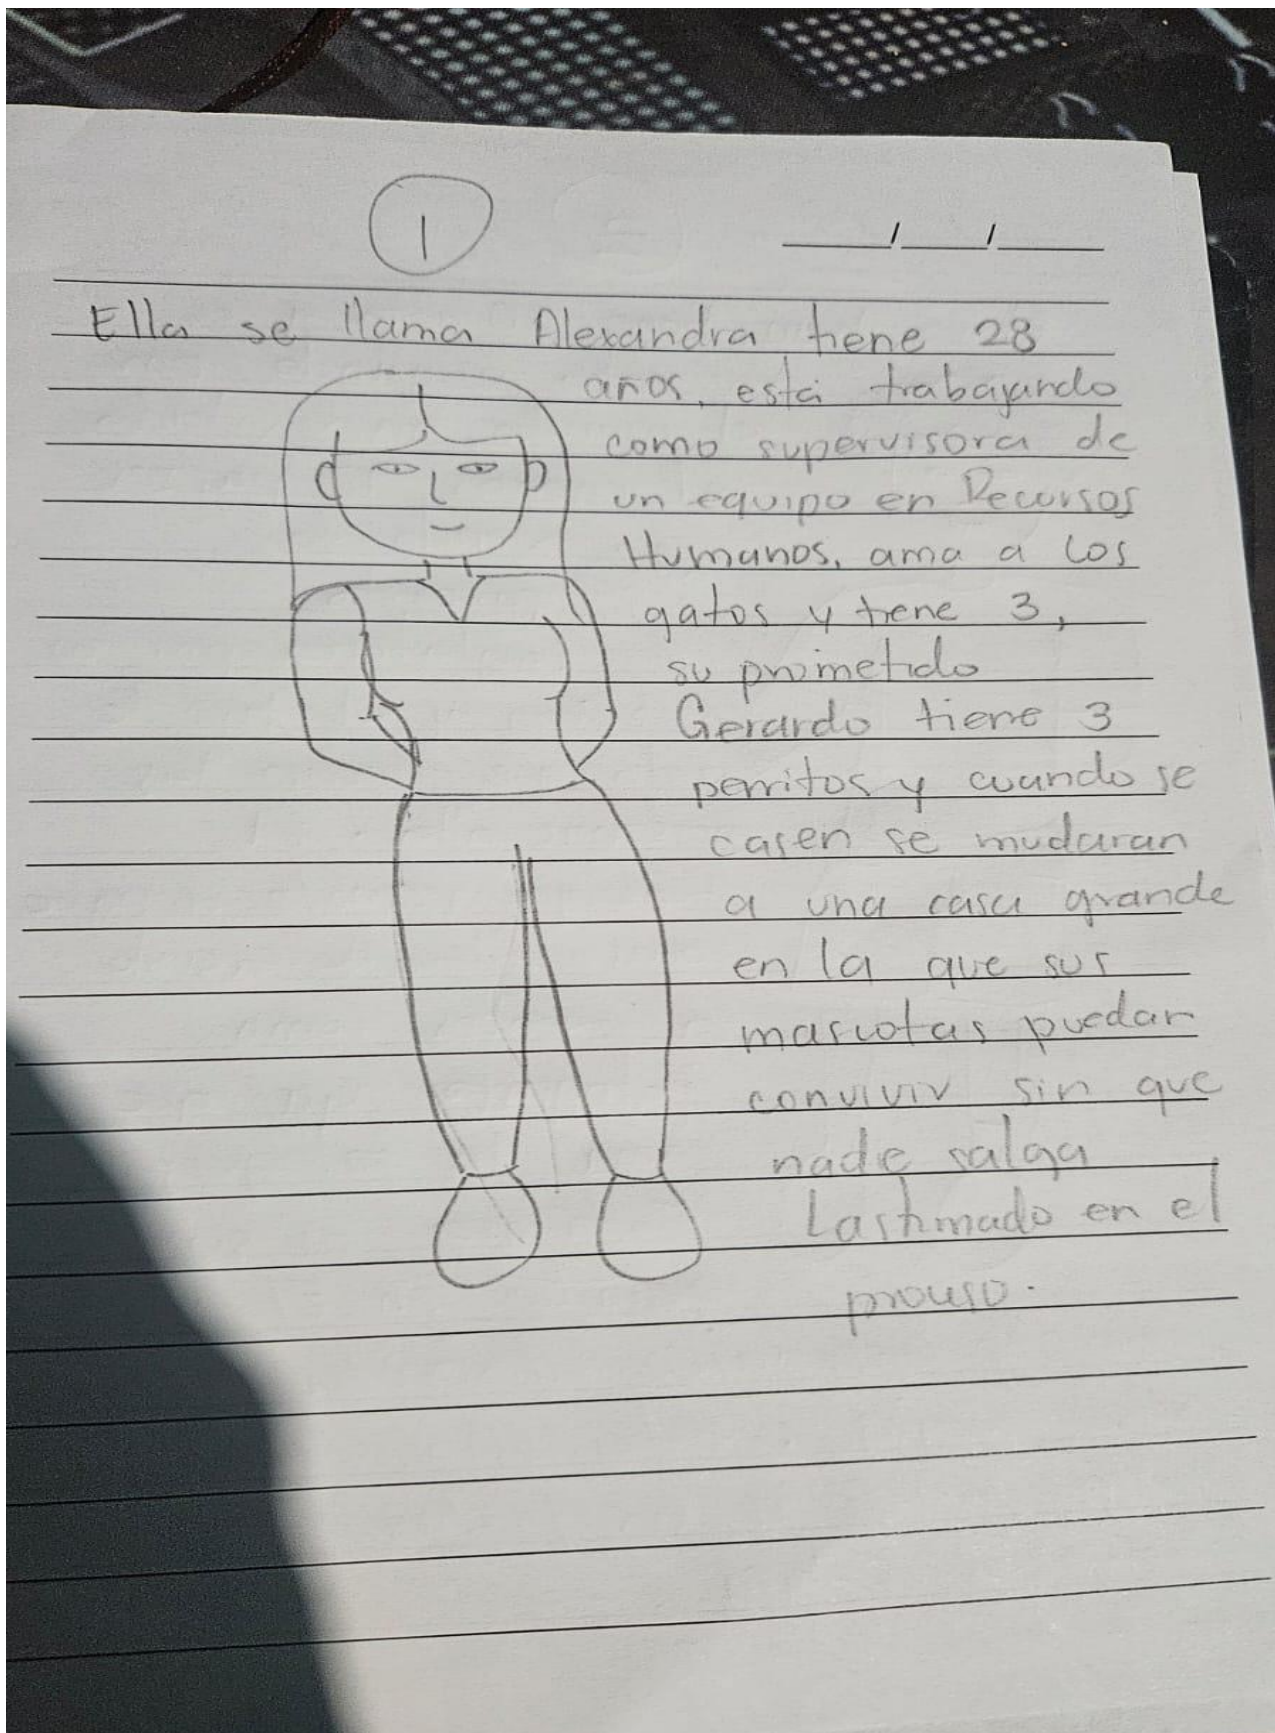 1
___/___/___
Ella se llama Alexandra tiene 28
años, está trabajando
como supervisora de
un equipo en Recursos
Humanos, ama a los
gatos y tiene 3,
su prometido
Gerardo tiene 3
perritos y cuando se
casen se mudaran
a una casa grande
en la que sus
mascotas puedan
convivir sin que
nadie salga
Lastimado en el
proceso.